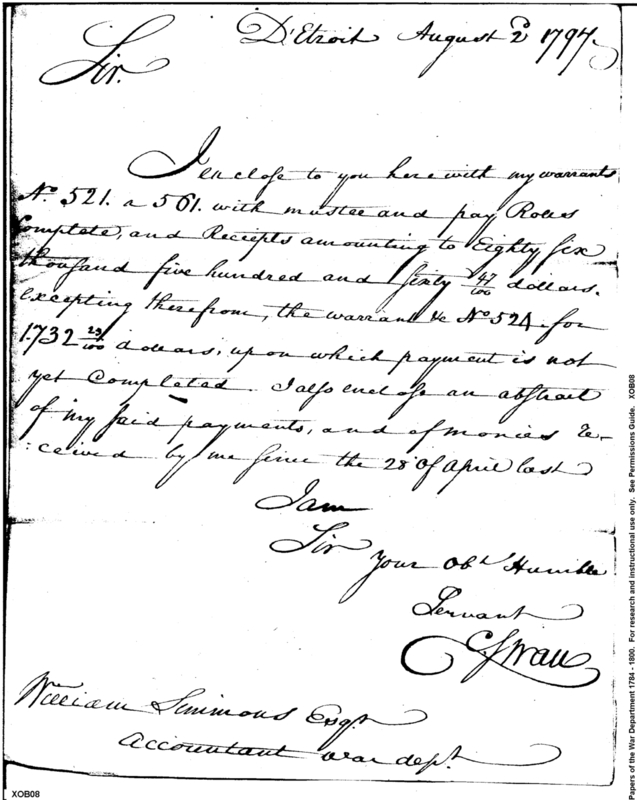 D'Etroit August 2d 1797.
Sir.
I enclose to you here with my warrants
No. 521. a 561. with muster and pay Rolls
Complete, and Receipts amounting to Eighty six
thousand five hundred and sixty 47/100 dollars.
excepting therefrom, the warrant &c No 524. for
1732 23/100 dollars, upon which payment is not
yet Completed. I also enclose an abstract
of my said payments, and of monies Re-
:ceived by me since the 28 of April last
I am
Sir
your Obt Humble
Servant
C Swan
William Simmons Esqr.
Accountant war dept.
XOB08
Papers of the War Department 1784 - 1800. For research and instructional use only. See Permissions Guide. XOB08